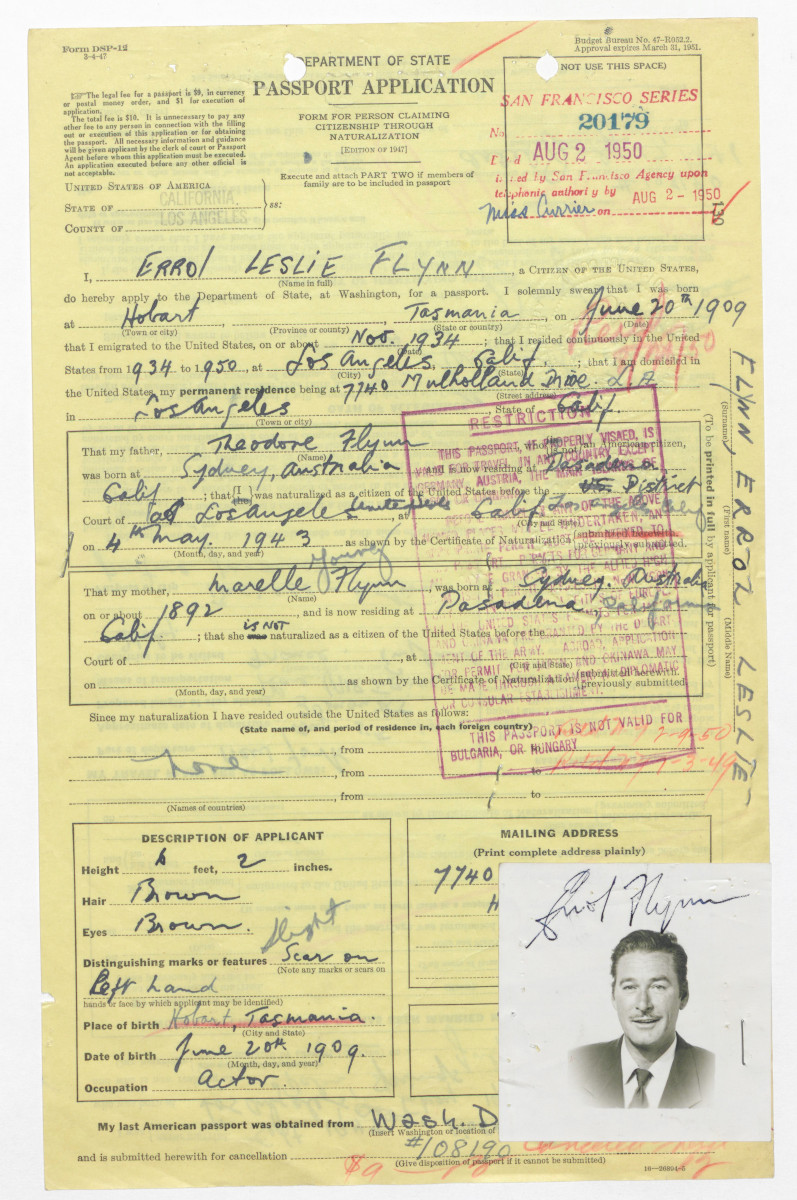 Form DSP-12
3-4-47
Budget Bureau No. 47-R052.2.
Approval expires March 31, 1951.
The legal fee for a passport is $9, in currency
or postal money order, and $1 for execution of
application.
The total fee is $10. It is unnecessary to pay any
other fee to any person in connection with the filling
out or execution of this application or for obtaining
the passport. All necessary information and guidance
will be given applicant by the clerk of court or Passport
Agent before whom this application must be executed.
An application executed before any other official is
not acceptable.
DEPARTMENT OF STATE
PASSPORT APPLICATION
FORM FOR PERSON CLAIMING
CITIZENSHIP THROUGH
NATURALIZATION
[EDITION OF 1947]
Execute and attach PART TWO if members of
family are to be included in passport
NOT USE THIS SPACE)
SAN FRANCISCO SERIES
No 20179
AUG 2 1950
by San Francisco Agency upon
telephonic authority by AUG 2 - 1950
Miss Currier on
130
UNITED STATES OF AMERICA
STATE OF CALIFORNIA
COUNTY OF LOS ANGELES
ss:
I, ERROL LESLIE FLYNN, a CITIZEN OF THE UNITED STATES,
(Name in full)
do hereby apply to the Department of State, at Washington, for a passport. I solemnly swear that I was born
at Hobart, Tasmania, on June 20th 1909
(Town or city) (Province or county) (State or country) (Date)
that I emigrated to the United States, on or about Nov. 1934; that I resided continuously in the United
(Date)
States from 1934 to 1950, at Los Angeles, Calif.; that I am domiciled in
(City) (State)
the United States, my permanent residence being at 7740 Mulholland Drive L.A
(Street address)
in Los Angeles State of Calif.
(Town or city)
That my father, Theodore Flynn, who is not an American citizen,
(Name)
was born at Sydney, Australia and is now residing at Pasadena
Calif; that I was naturalized as a citizen of the United States before the US District
Court of at Los Angeles, at Calif
(City and State)
on 4th May. 1943 as shown by the Certificate of Naturalization (submitted
(Month, day, and year) previously submitted.
That my mother, Marelle Young Flynn, was born at Sydney, Australia
(Name)
on or about 1892, and is now residing at Pasadena, California
Calif.; that she is not naturalized as a citizen of the United States before the
Court of, at
(City and State)
on as shown by the Certificate of Naturalization (submitted herewith.
(Month, day, and year) (previously submitted.
RESTRICTION
THIS PASSPORT, IF PROPERLY VISAED, IS
VALID FOR TRAVEL IN ANY COUNTRY EXCEPT
GERMANY, AUSTRIA,
OF THE ARMY. ABROAD, APPLICATION
FOR PERMIT AND OKINAWA MAY
BE MADE THROUGH AN AMERICAN DIPLOMATIC
OR CONSULAR ESTABLISHMENT.
THIS PASSPORT IS NOT VALID FOR
BULGARIA, OR HUNGARY
FLYNN, ERROL LESLIE
(Surname) (First name) (Middle Name)
(To be printed in full by applicant for passport)
Since my naturalization I have resided outside the United States as follows:
(State name of, and period of residence in, each foreign country)
, from to
None, from to
, from to
(Names of countries)
DESCRIPTION OF APPLICANT
Height 6 feet, 2 inches.
Hair Brown
Eyes Brown.
Distinguishing marks or features slight Scar on
(Note any marks or scars on
Left hand
hands or face by which applicant may be identified)
Place of birth Hobart, Tasmania.
(City and State)
Date of birth June 20th. 1909.
(Month, day, and year)
Occupation Actor.
MAILING ADDRESS
(Print complete address plainly)
7740
H
Errol Flynn
My last American passport was obtained from Wash. D
(Insert Washington or location of
#108190
and is submitted herewith for cancellation
(Give disposition of passport if it cannot be submitted)
$9
16—26894-5